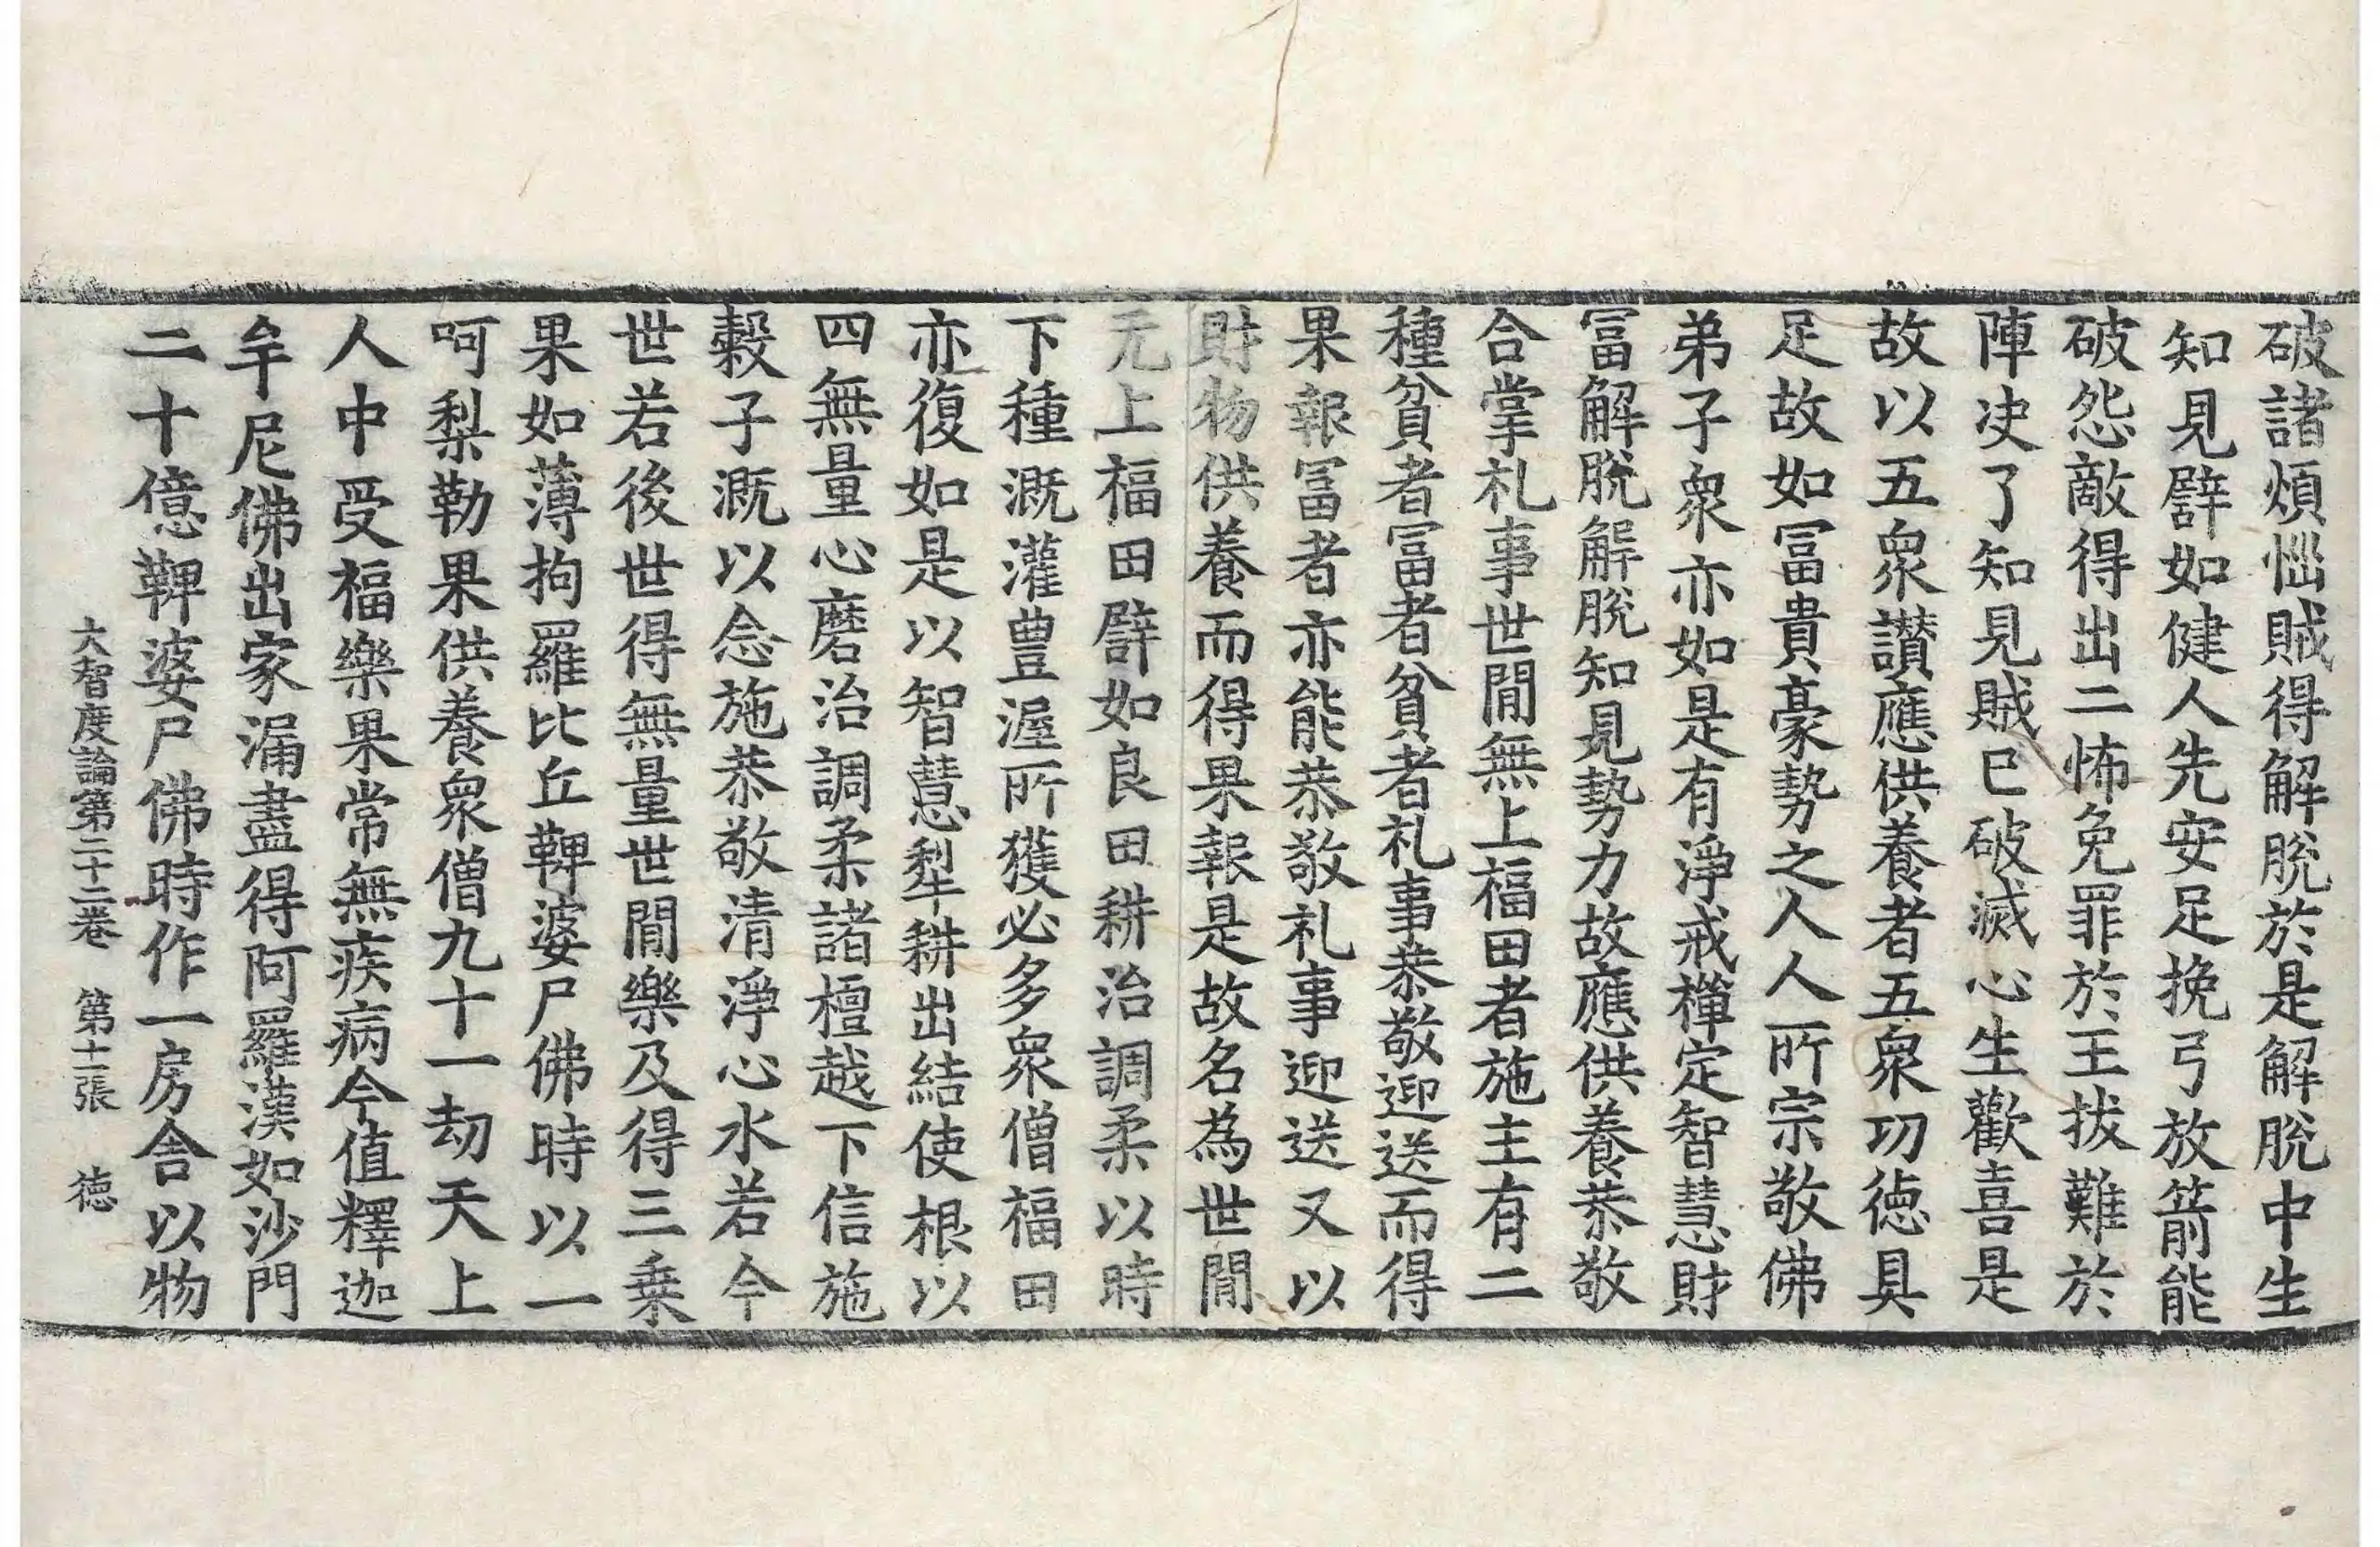 破諸煩惱賊得解脫於是解脫中生
知見譬如健人先安足挽弓放箭能
破怨敵得出二怖免罪於王拔難於
陣决了知見賊已破滅心生歡喜是
故以五衆讃應供養者五衆功徳具
足故如冨貴豪勢之人人所宗敬佛
弟子衆亦如是有淨戒禪定智慧財
冨解脫解脫知見勢力故應供養恭敬
合掌礼事世閒無上福田者施主有二
種貧者冨者貧者礼事恭敬迎送而得
果報冨者亦能恭敬礼事迎送又以
財物供養而得果報是故名為世閒
无上福田譬如良田耕治調柔以時
下種溉灌豊渥所獲必多衆僧福田
亦復如是以智慧犁耕出結使根以
四無量心磨治調柔諸檀越下信施
穀子溉以念施恭敬清淨心水若今
世若後世得無量世閒樂及得三乗
果如薄拘羅比丘鞞婆尸佛時以一
呵梨勒果供養衆僧九十一劫天上
人中受福樂果常無疾病今值釋迦
牟尼佛出家漏盡得阿羅漢如沙門
二十億鞞婆尸佛時作一房舎以物
大智度論第二十二卷　第十一張　徳